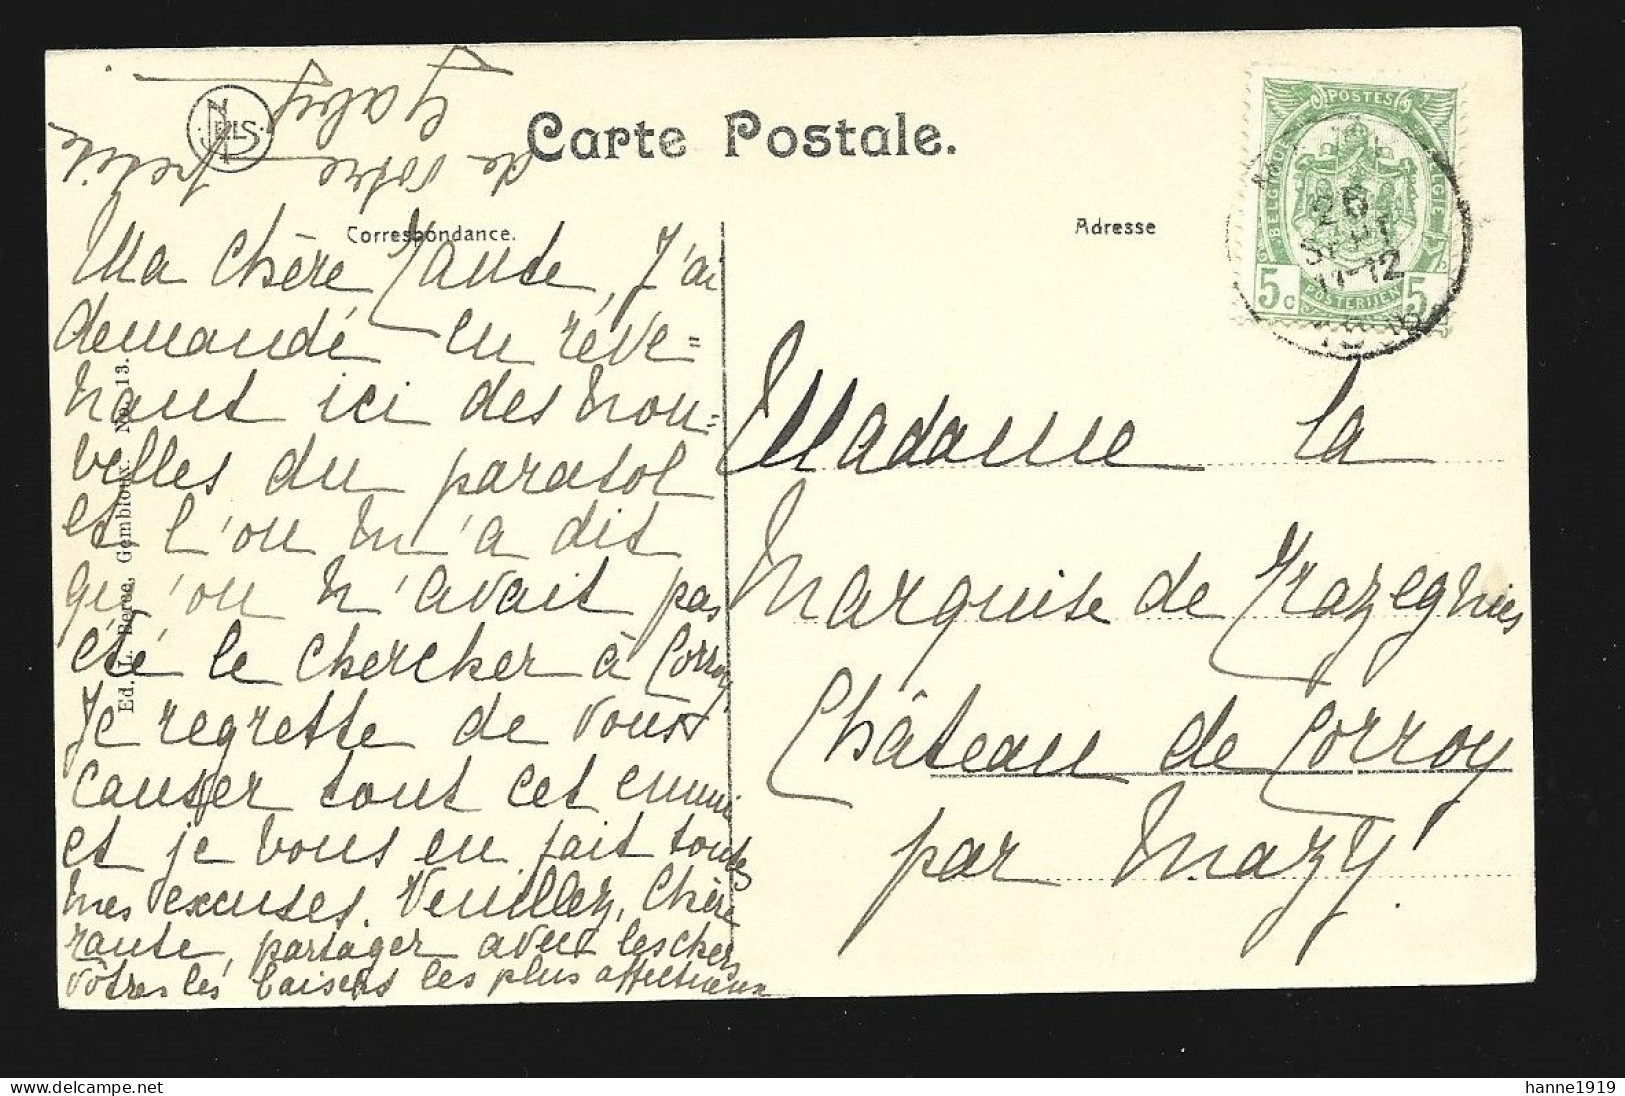 Carte Postale.
NELS
Correspondance.
Adresse
Ed. L. Berce, Gembloux. No. 13.
POSTES
BELGIQUE
BELGIE
POSTERIJEN
5c
5
26
SEPT
11-12
Ma Chère Tante, J'ai
demandé en reve=
nant ici des nou=
velles du parasol
et l'on m'a dit
qu'on n'avait pas
été le chercher à Corroy
Je regrette de vous
causer tout cet ennui
et je vous en fait toutes
mes excuses. Veuillez, Chère
Tante, partager avec les chers
vôtres les baisers les plus affectueux
de votre petite
Gaby
Madame la
Marquise de Trazegnies
Château de Corroy
par Mazy
hanne1919